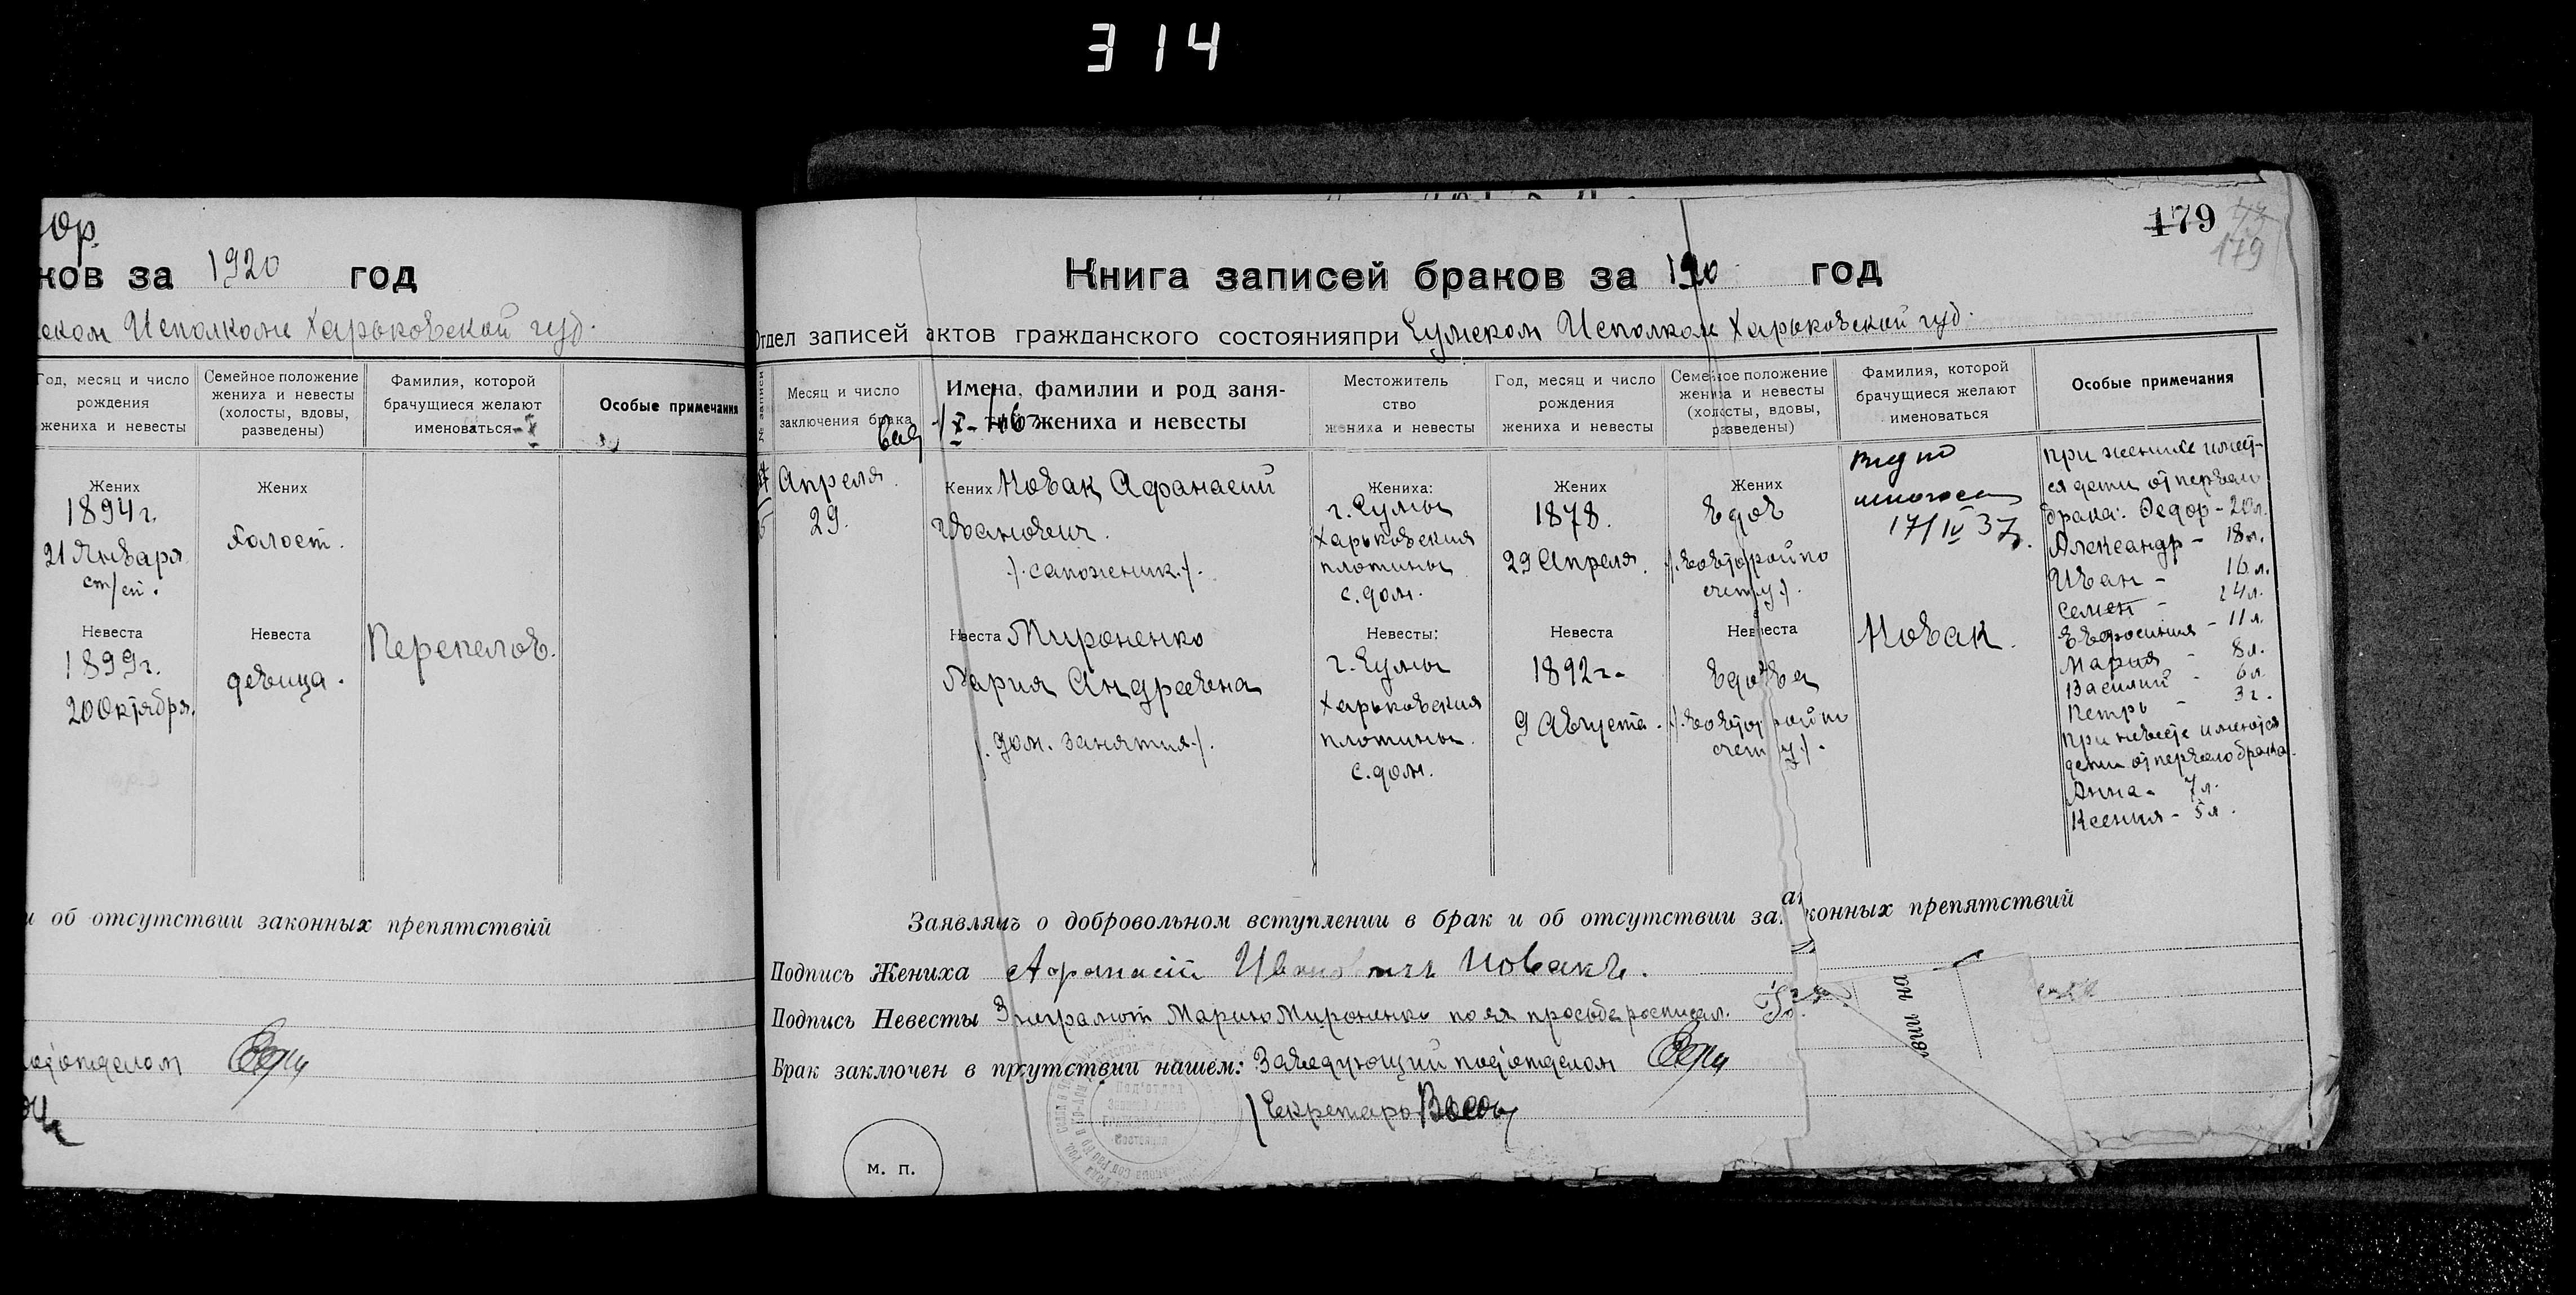 314
юр.
ков за 1920 год
ском Исполкоме Харьковской губ.
Год, месяц и число рождения жениха и невесты
Семейное положение жениха и невесты (холосты, вдовы, разведены)
Фамилия, которой брачущиеся желают именоваться
Особые примечания
Жених
1894 г.
21 Января
ст/ст.
Жених
Холост.
Невеста
1899 г.
20 Октября.
Невеста
девица.
Перепелов.
и об отсутствии законных препятствий
подотделом
179
179
Книга записей браков за 1920 год
Отдел записей актов гражданского состояния при Сумском Исполком Харьковской губ.
№ записи
Месяц и число
заключения брака
Имена, фамилии и род заня-
тий жениха и невесты
Местожитель
ство
жениха и невесты
Год, месяц и число
рождения
жениха и невесты
Семейное положение
жениха и невесты
(холосты, вдовы,
разведены)
Фамилия, которой
брачущиеся желают
именоваться
Особые примечания
Апреля
29.
Жених Новак Афанасий
Иванович.
/.сапожник./.
Жениха:
г. Сумы
Харьковския
плотины
с. дом.
Жених
1878.
29 Апреля.
Жених
вдов
/.вовторой по
счету./.
17/IV 37.
Невеста Мироненко
Мария Андреевна
/.дом. занятия./.
Невесты:
г. Сумы
Харьковския
плотины
с. дом.
Невеста
1892 г.
9 Августа.
Невеста
вдова
/.вовторой по
счету./.
Новак.
при женихе имеют-
ся дети от перваго
брака: Федор - 20 л.
Александр - 18 л.
Иван - 16 л.
Семен - 14 л.
Евфросиния - 11 л.
Мария - 8 л.
Василий - 6 л.
Петр - 3 г.
При невесте имеются
дети от перваго брака.
Анна - 7 л.
Ксения - 5 л.
Заявляем о добровольном вступлении в брак и об отсутствии законных препятствий
Подпись Жениха Афанасий Иванович Новакъ.
Подпись Невесты За неграмот Марию Мироненко по ея просьбе росписал.
Брак заключен в присутствии нашем: Заведующий подотделом
Секретарь
м. п.